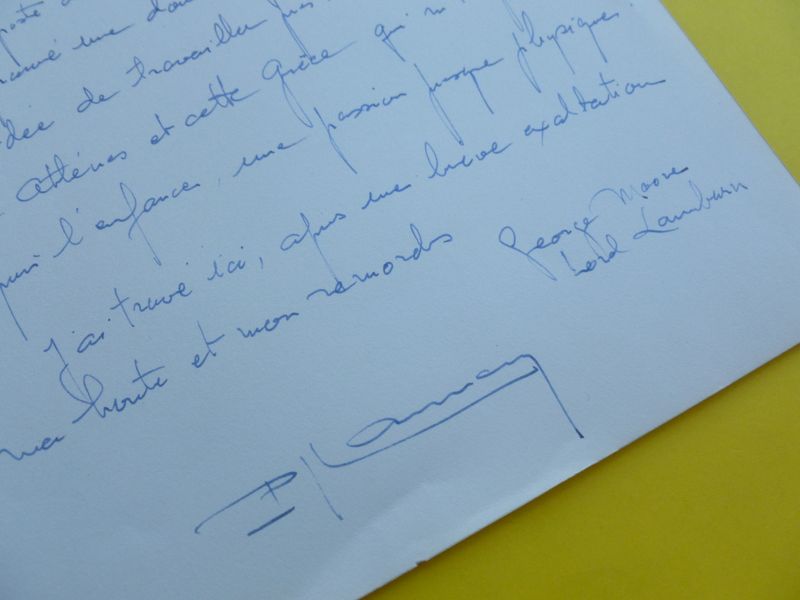 posté
trouvé une
idée de travailler
Athènes et cette Grèce qui m'
puis l'enfance, une passion presque physique.
J'ai trouvé ici, après une brève exaltation
ma honte et mon remords
George Moore
Lord Lamburn